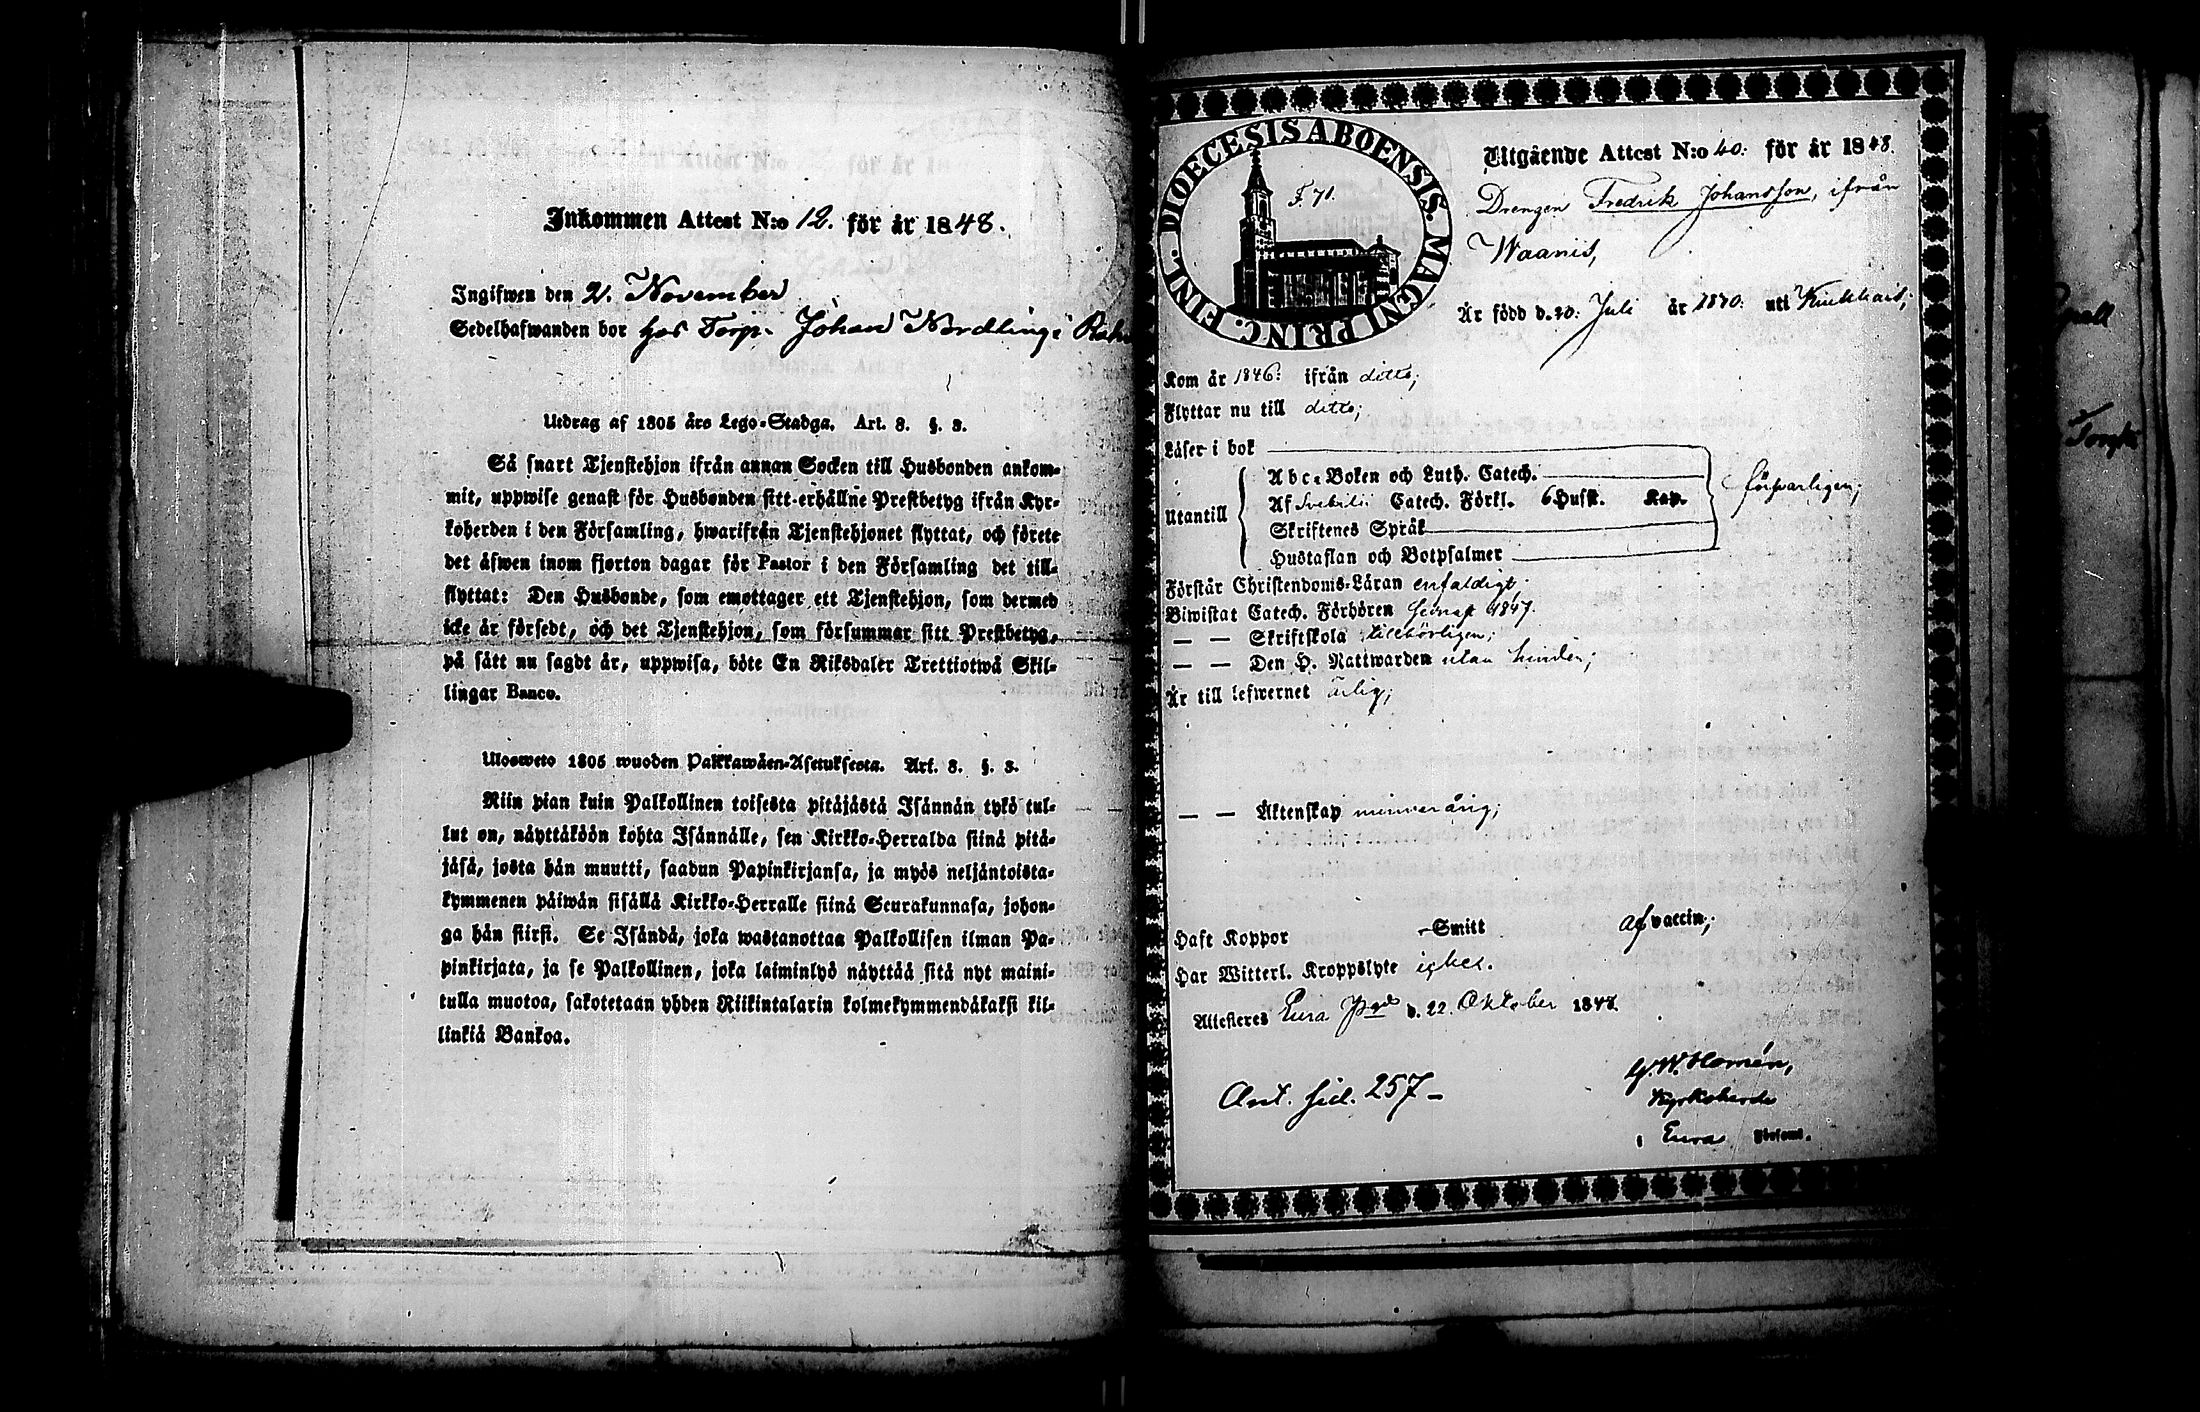 Inkommen Attest N:o 12. för år 1848.
Ingifwen den 2. November
Sedelhafwanden bor hos Torp. Johan Nordling i
Utdrag af 1805 års Lego-Stadga. Art. 8. §. 3.
Så snart Tjenstehjon ifrån annan Socken till Husbonden ankom-
mit, uppwise genast för Husbonden sitt erhållne Prestbetyg ifrån Kyr-
koherden i den Församling, hwarifrån Tjenstehjonet flyttat, och förete
det äfwen inom fjorton dagar för Pastor i den Församling det till-
flyttat: Den Husbonde, som emottager ett Tjenstehjon, som dermed
icke är försedt, och det Tjenstehjon, som försummar sitt Prestbetyg,
på sätt nu sagdt är, uppwisa, böte En Riksdaler Trettiotwå Skil-
lingar Banco.
Ulosweto 1805 wuoden Palkkawäen-Asetuksesta. Art. 8. §. 3.
Niin pian kuin Palkollinen toisesta pitäjästä Isännän tykö tul-
lut on, näyttäköön kohta Isännälle, sen Kirkko-Herralda siinä pitä-
jäsä, josta hän muutti, saadun Papinkirjansa, ja myös neljäntoista-
kymmenen päiwän sisällä Kirkko-Herralle siinä Seurakunnasa, johon-
ga hän siirsi. Se Isändä, joka wastanottaa Palkollisen ilman Pa-
pinkirjata, ja se Palkollinen, joka laiminlyö näyttää sitä nyt maini-
tulla muotoa, sakotetaan yhden Riikintalarin kolmekymmendäkaksi kil-
linkiä Bankoa.
DIOECESIS ABOENSIS. MAGNI PRINC. FINL.
F. 71.
Utgående Attest N:o 40: för år 1848.
Drengen Fredrik Johansson, ifrån
Waanis,
Är född d. 20. Juli år 1830: uti
Kom år 1846: ifrån ditto;
Flyttar nu till ditto;
Läser i bok
Utantill
Abc-Boken och Luth. Catech.
Af Svebilii Catech. Förkl. 6 Husst. Kap.
Skriftenes Språk
Hustaflan och Botpsalmer
försvarligen;
Förstår Christendoms-Läran enfaldigt;
Biwistat Catech. Förhören senast 1847.
— — Skriftskola tillbörligen;
— — Den H. Nattwarden utan hinder;
Är till lefwernet ärlig;
— — Äktenskap minderårig;
Haft Koppor -Smitt af vaccin;
Har Witterl. Kroppslyte icke.
Attesteres Eura Pgd d. 22. Oktober 1848.
Ant. sid. 257-
G. W. Homén,
Kyrkoherde
i Eura Förfaml.
Torp